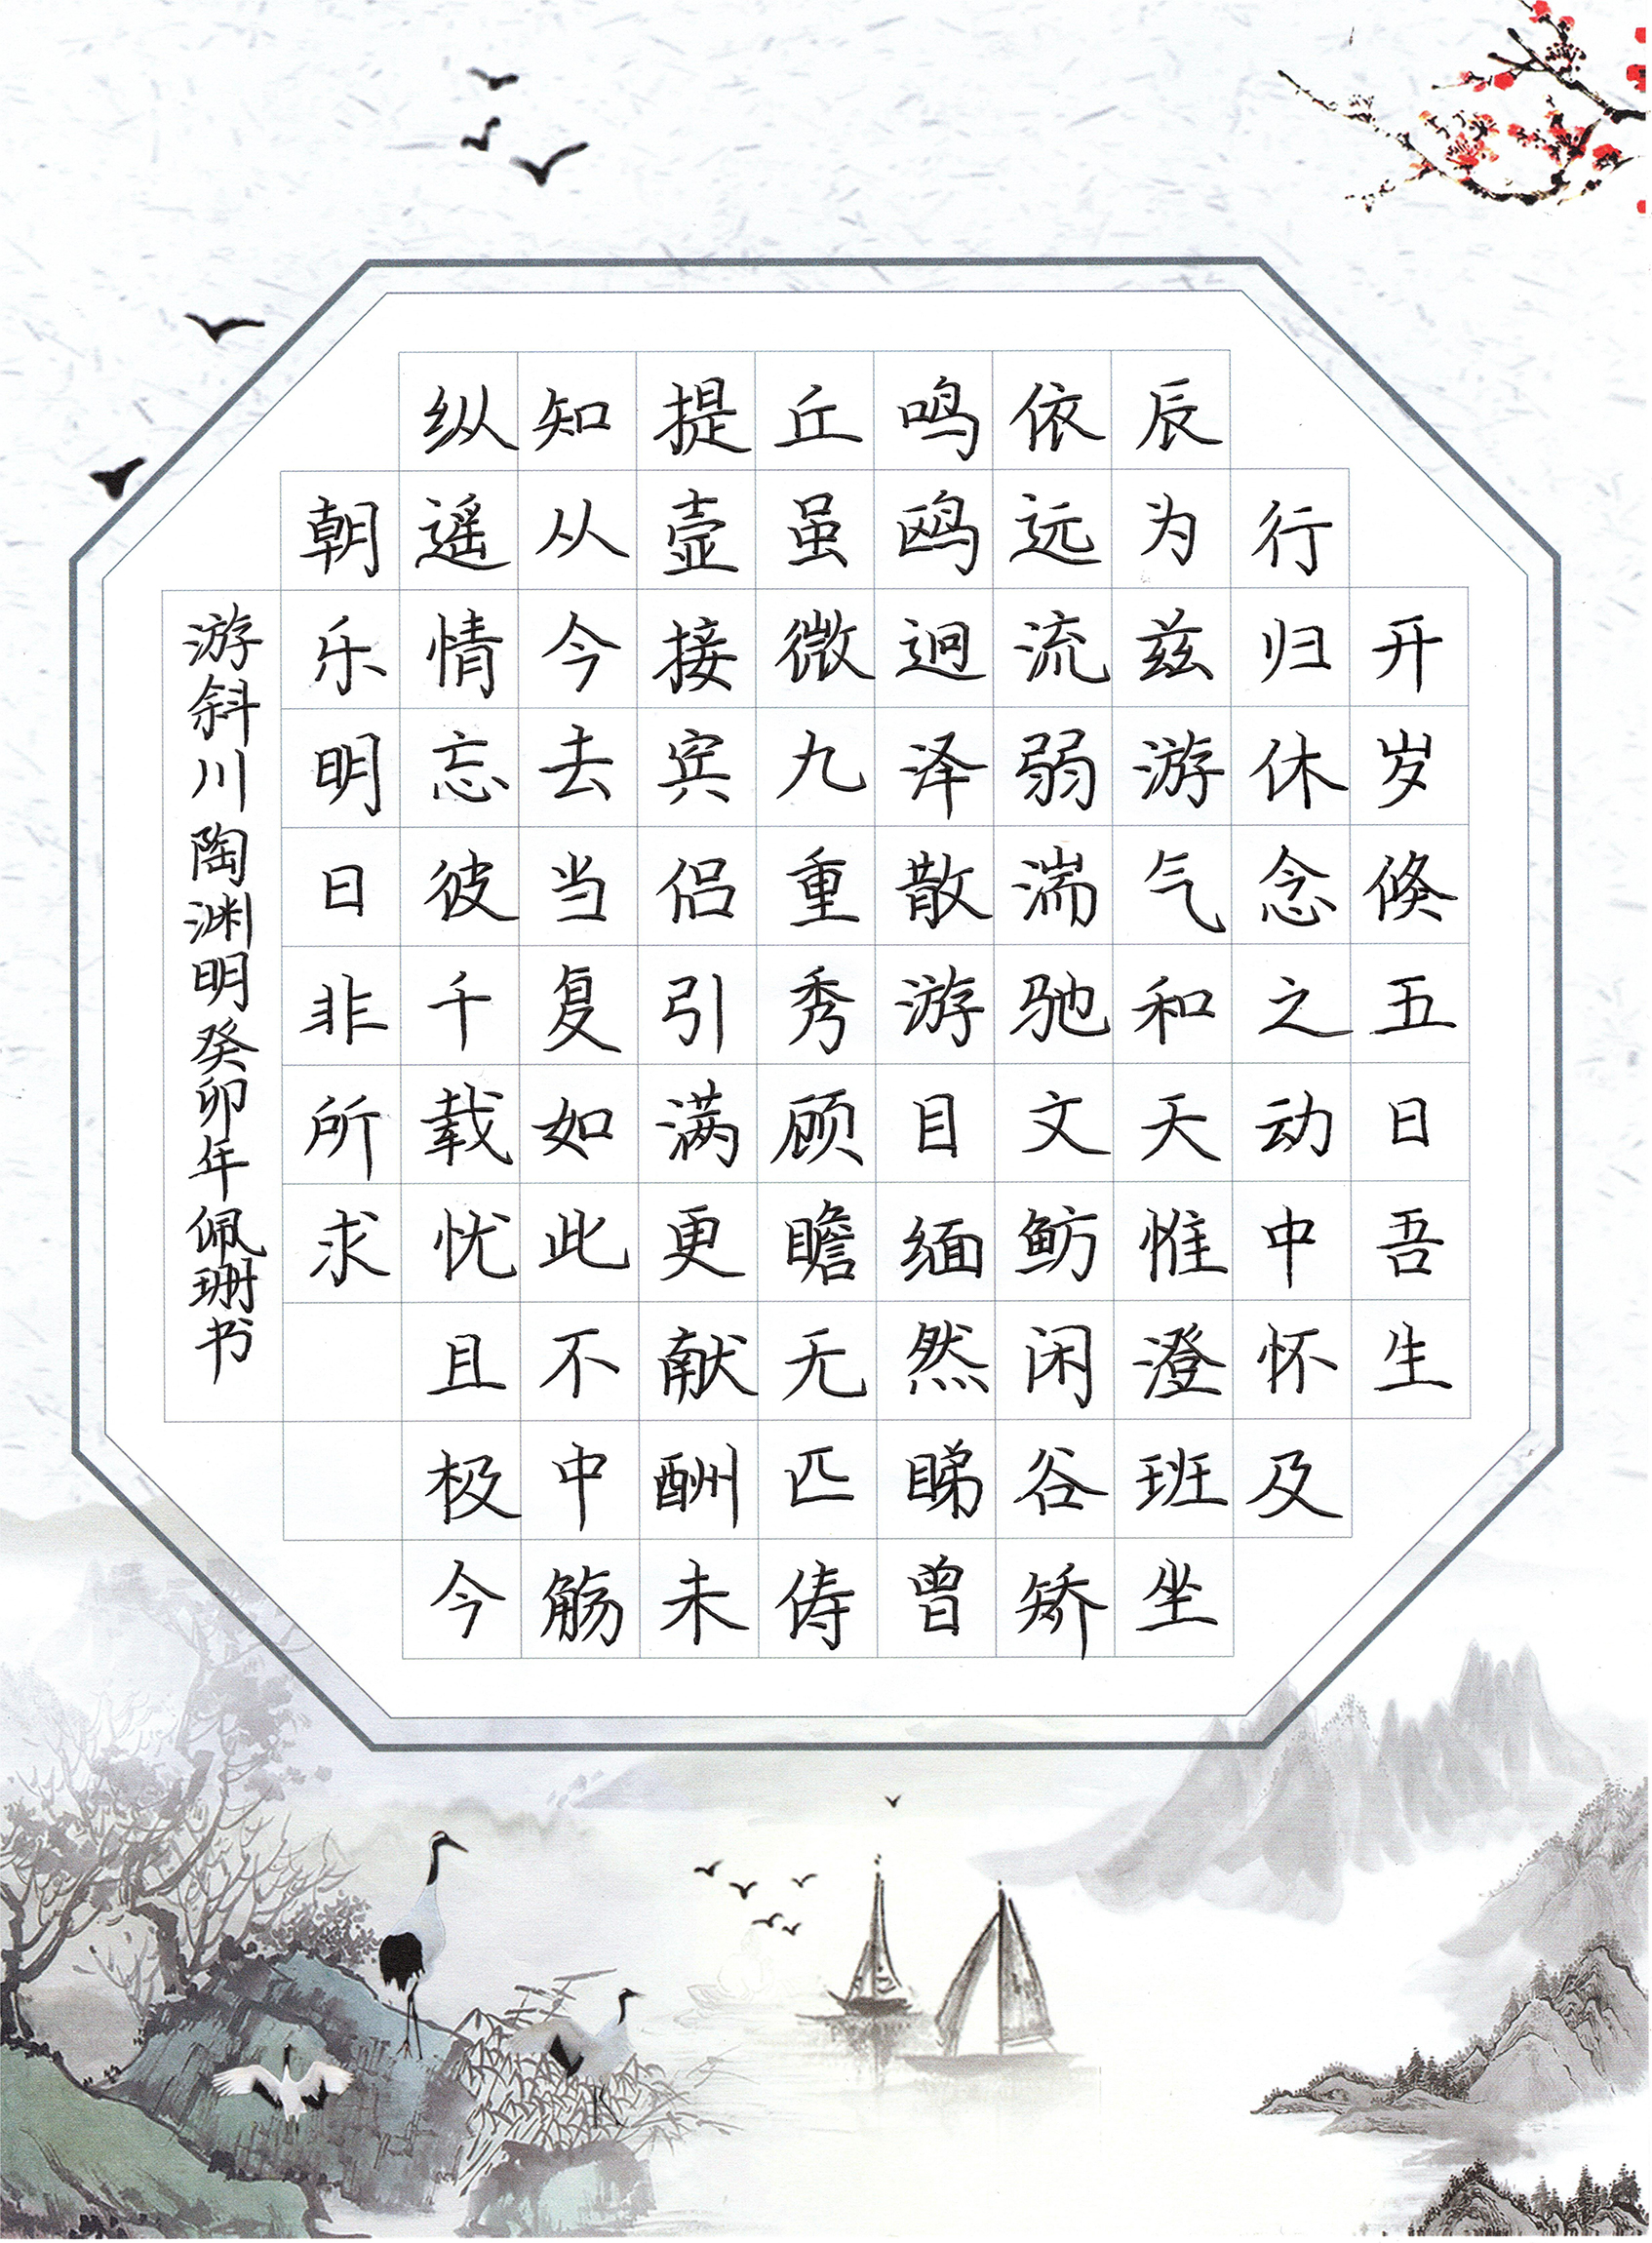 开岁倏五日吾生
行归休念之动中怀及
辰为兹游气和天惟澄班坐
依远流弱湍驰文鲂闲谷矫
鸣鸥迥泽散游目缅然睇曾
丘虽微九重秀顾瞻无匹俦
提壶接宾侣引满更献酬未
知从今去当复如此不中觞
纵遥情忘彼千载忧且极今
朝乐明日非所求
游斜川陶渊明癸卯年佩珊书